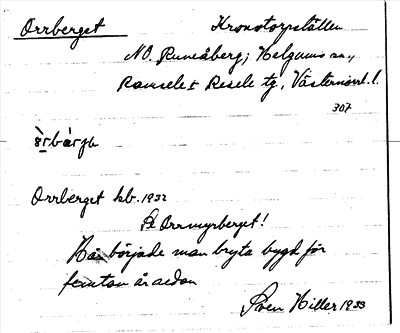 Orrberget Kronotorpställe
NO. Runsåberg; Helgums sn.,
Ramsele o. Resele tg, Västernorrl. l.
307
Orrberget kb. 1932
Se Orrmyrberget!
Här började man bryta bygd för
femton år sedan
Sven Hiller 1933